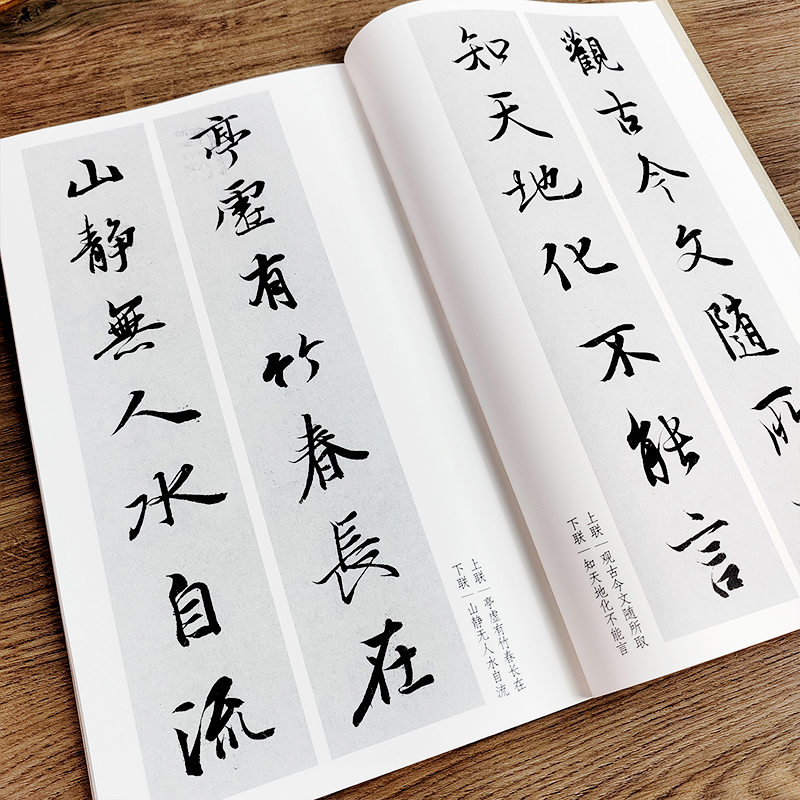 觀古今文随所
知天地化不能言
上联｜观古今文随所取
下联｜知天地化不能言
亭虚有竹春長在
山静無人水自流
上联｜亭虚有竹春长在
下联｜山静无人水自流